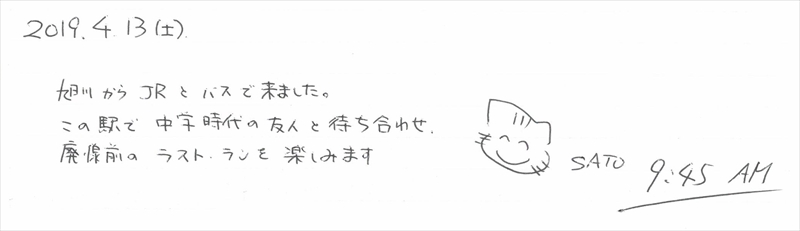 2019.4.13(土).
旭川からJRとバスで来ました。
この駅で中学時代の友人と待ち合わせ.
廃線前のラスト・ランを楽しみます
SATO 9:45 AM